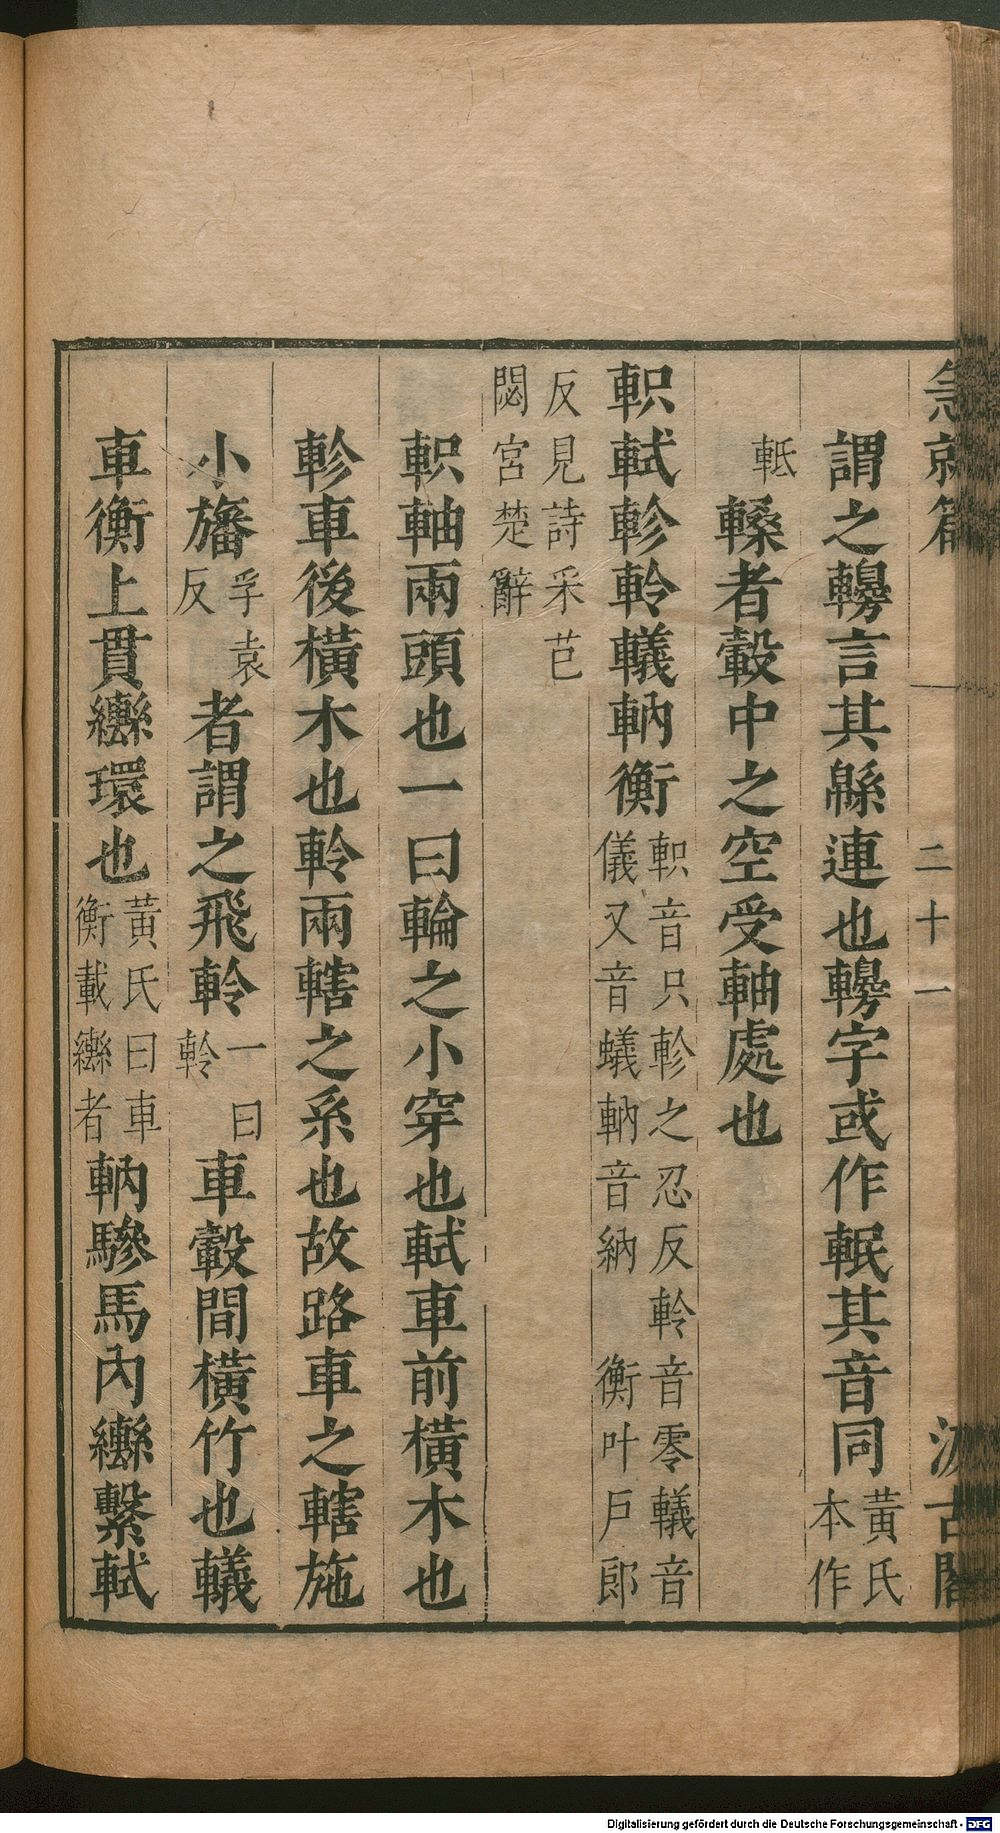 急就篇 二十一 汲古閣
謂之轓言其緜連也轓字或作輥其音同黃氏本作
軝䡦者轂中之空受軸處也
軹軾軫軨轙軜衡軹音只軫之忍反軨音零轙音儀又音蟻軜音納 衡叶戶郎
反見詩采芑閟宮楚辭
軹軸兩頭也一曰輪之小穿也軾車前橫木也
軫車後橫木也軨兩轄之系也故路車之轄施
小旛孚袁反者謂之飛軨一曰軨車轂間橫竹也轙
車衡上貫轡環也黃氏曰車衡載轡者軜驂馬內轡繫軾
Digitalisierung gefördert durch die Deutsche Forschungsgemeinschaft - DFG